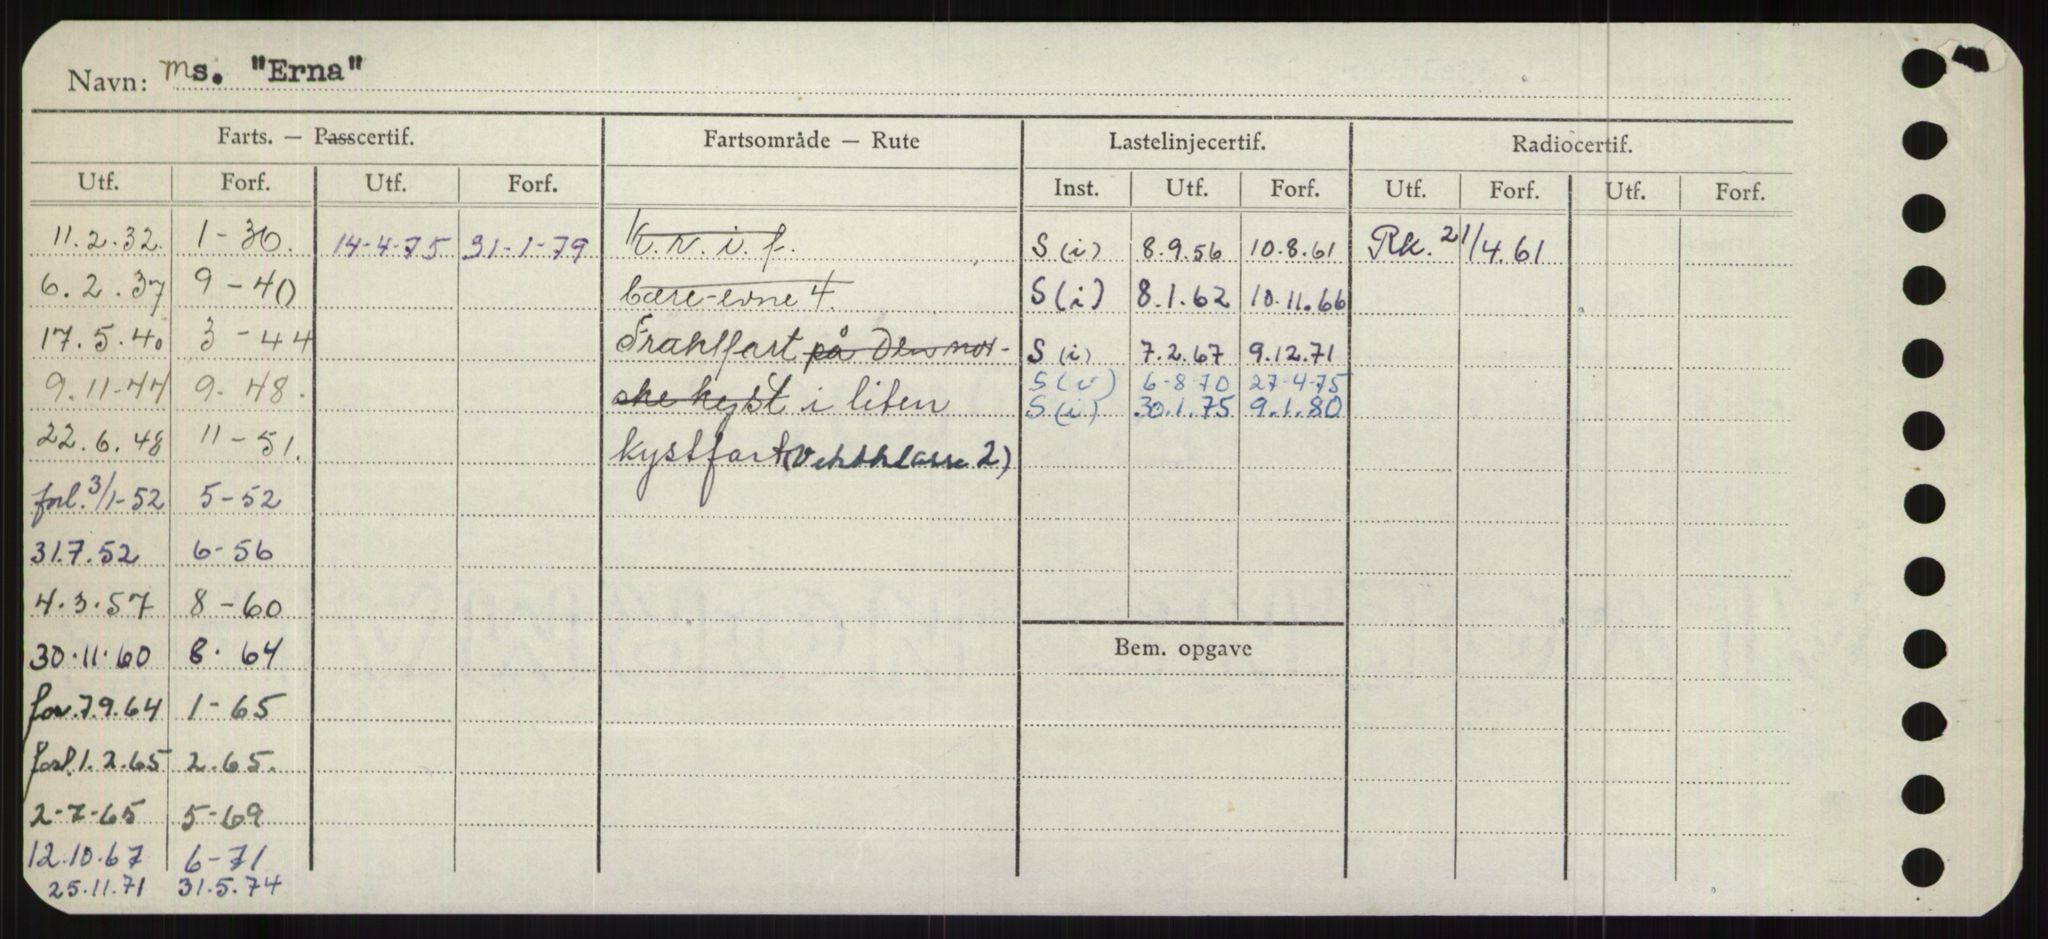 Navn: ms. "Erna"
Farts. — Passcertif. Fartsområde — Rute Lastelinjecertif. Radiocertif.
Utf. Forf. Utf. Forf. Inst. Utf. Forf. Utf. Forf. Utf. Forf.
11.2.32. 1-36. 14-4-75 31-1-79 K.v.i.f. S(i) 8.9.56 10.8.61 Rk. 21/4.61
6.2.37 9-40 bære-evne 4. S(i) 8.1.62 10.11.66
17.5.40 3-44 Fraktfart på den nor- S(i) 7.2.67 9.12.71
9.11-44 9-48. ske kyst i liten S(i) 6-8 70 27-4-75
S(i) 30.1.75 9.1.80
22.6.48 11-51. kystfart (Vektklasse 2)
forl. 3/1-52 5-52
31.7.52 6-56
4.3.57 8-60
30.11.60 8.64
Bem. opgave
for. 7.9.64 1-65
forl. 1.2.65 2.65.
2-7-65 5-69
12.10.67 6-71
25.11.71 31.5.74